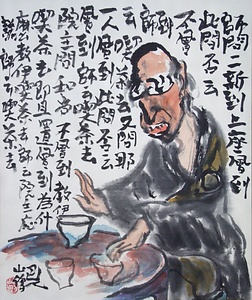 師問二新到上座曾到
此間否云
不曾到
師
云喫茶去又問那
一人曾到此間否云
曾到師云喫茶去
院主問和尚不曾到教伊
喫茶去即且置曾到為什
麼教伊喫茶去師云院主應
諾師云喫茶去